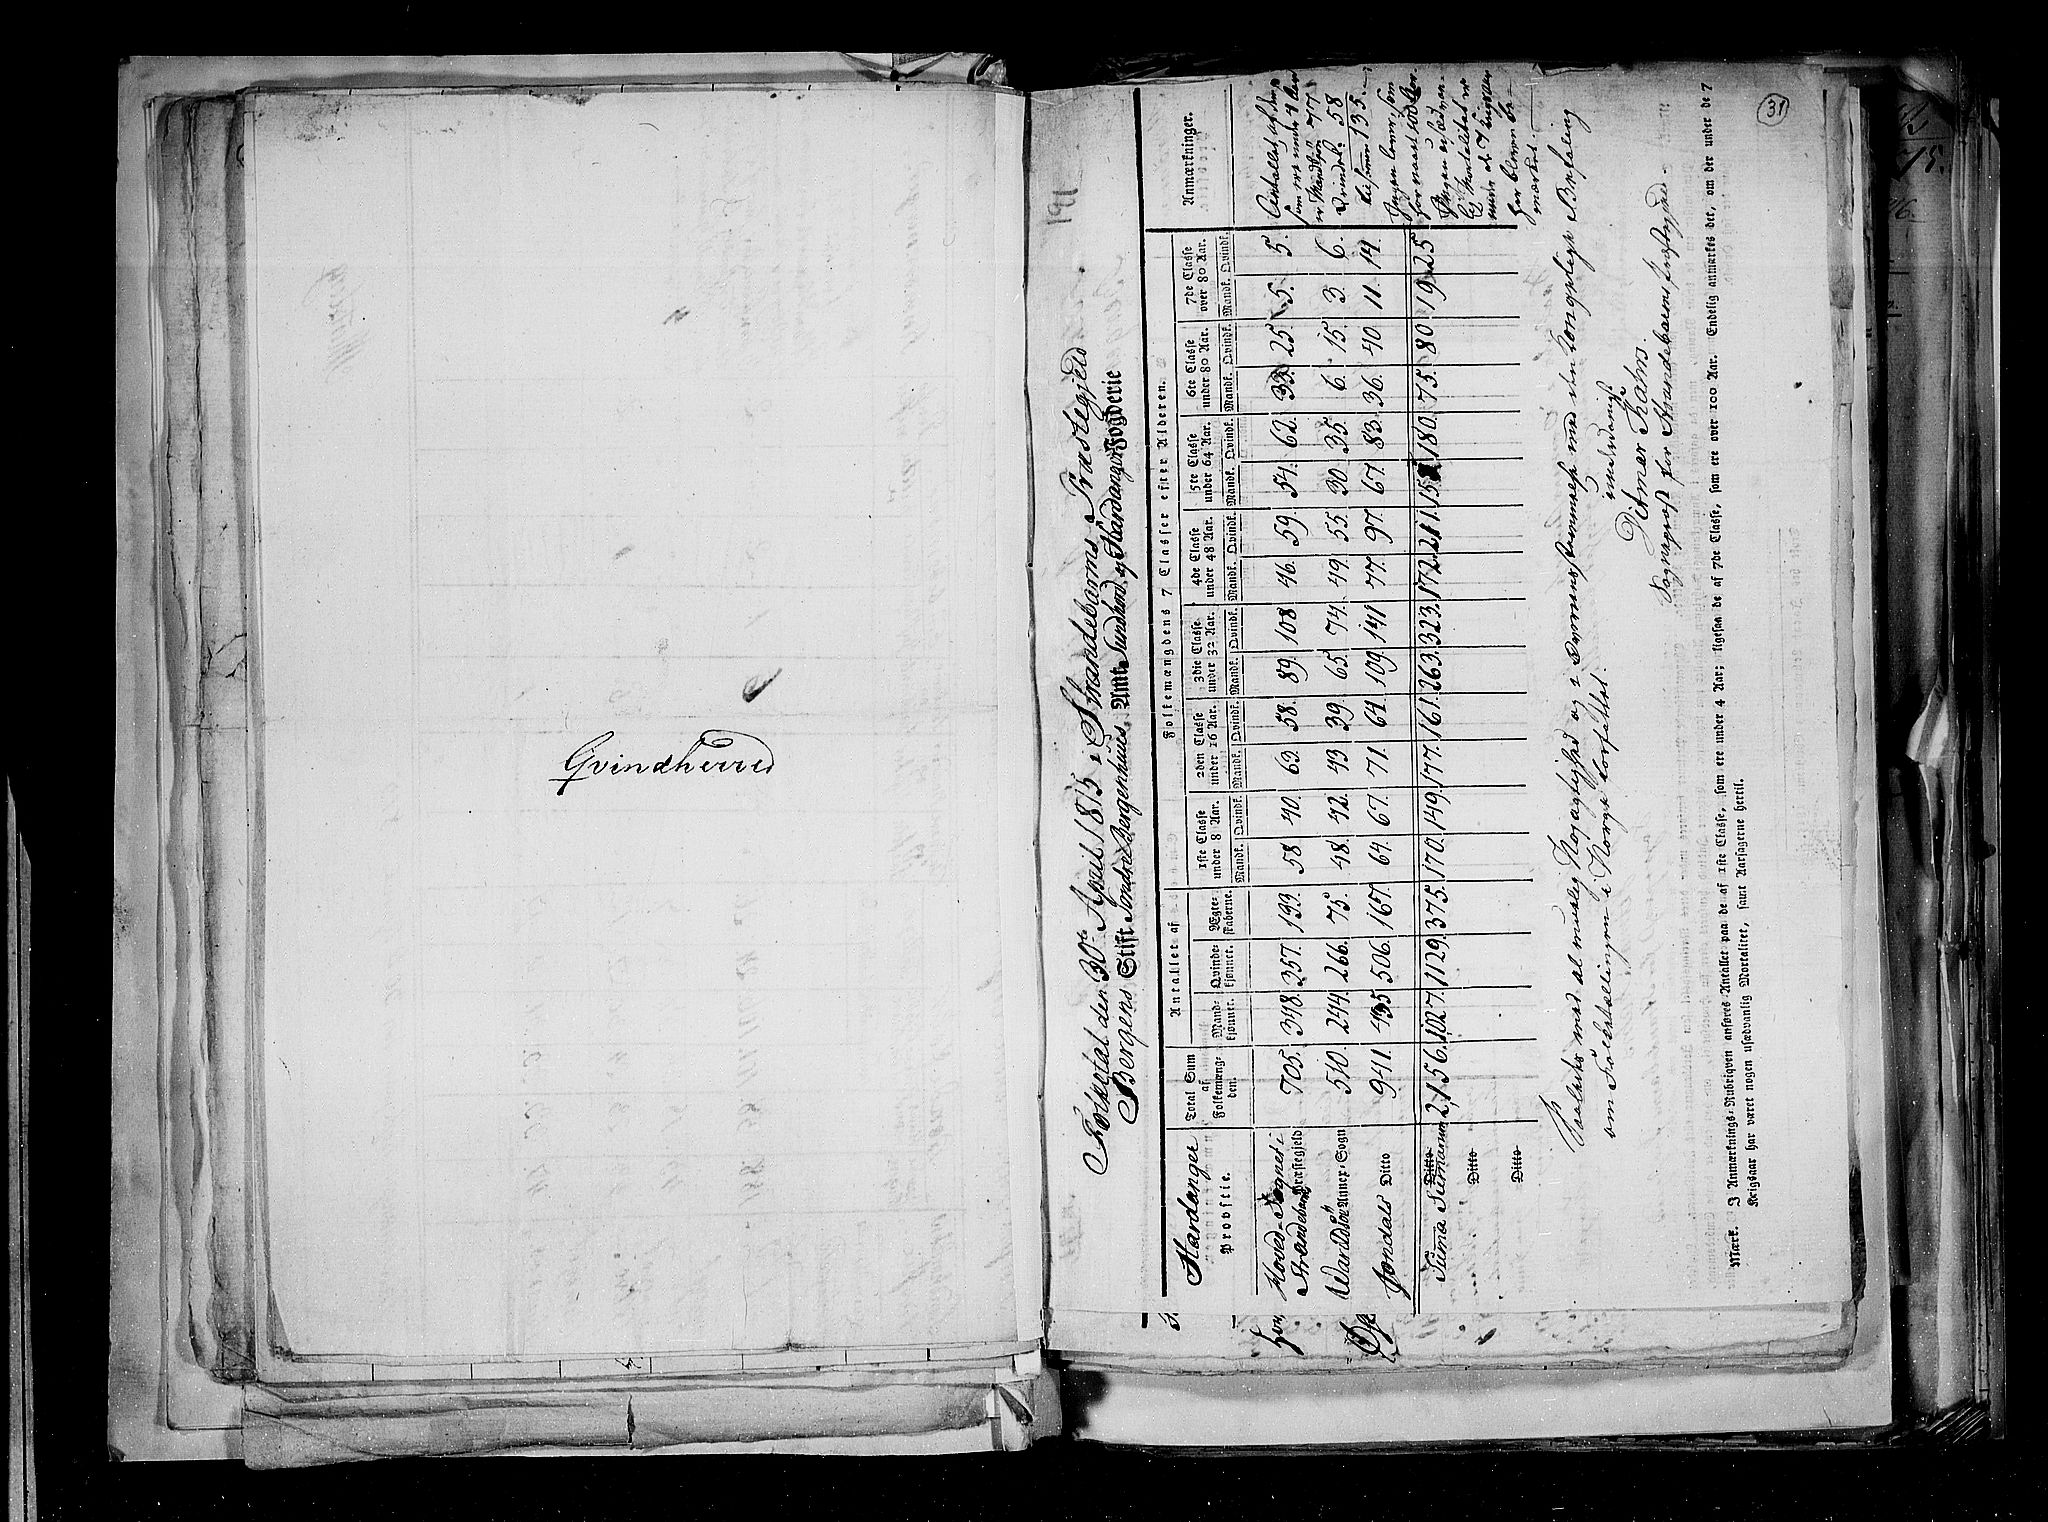 Gvindherred
31
191
Folketal den 30te April 1815 i Strandebarms Præstegjeld
Bergens Stift, Søndre Bergenhuus Amt, Sundhord og Hardanger Fogderie
Hardanger Provstie.
Total Sum af Folkemængden.
Antallet af
Mandkjønnet.
Qvindekjønnet.
Ægteskaberne.
Folkemængdens 7 Classer efter Alderen.
1ste Classe under 8 Aar.
2den Classe under 16 Aar.
3die Classe under 32 Aar.
4de Classe under 48 Aar.
5te Classe under 64 Aar.
6te Classe under 80 Aar.
7de Classe over 80 Aar.
Anmærkninger.
Mandk. Qvindk. Mandk. Qvindk. Mandk. Qvindk. Mandk. Qvindk. Mandk. Qvindk. Mandk. Qvindk. Mandk. Qvindk.
Hoved-Sognet i Strandebarms Præstegjeld 705. 348. 357. 133. 58 40. 63. 58. 89. 108 46. 59. 54. 62. 33. 25. 5. 5.
Waralds Annex-Sogn 510. 244. 266. 75. 48. 42. 43 39. 65. 74. 49. 55. 30 35. 6. 15. 3. 6.
Jondals Ditto 941. 435 506. 167. 64. 67. 71. 64. 109. 141 77. 97. 67. 83. 36. 40 11. 14.
Suma Sumarum Ditto 2,156. 1027. 1129. 375. 170. 149. 177. 161. 263. 323. 172. 211. 151. 180. 75. 80 19. 25
Ditto
Ditto
Antallet af dem
som ere under 4 Aar
er Mandkjøn 77
Qvindek: 58
tilsammen 135.
Ingen
har naaet 100 Aar.
har blevet be-
mærket.
Saaledes med al muelig Nøjagtighed og i Overeensstemmelse med den Kongelige Befaling
om Folketællingen i Norge forfattet.
Ditmer Kahrs.
Sognepræst for Strandebarms Præstegjeld
Mærk. I Anmærknings-Rubriqven anføres Antallet paa de af 1ste Classe, som ere under 4 Aar; ligesaa de af 7de Classe, som ere over 100 Aar. Endelig anmærkes det, om der under de 7
Krigsaar har været nogen usædvanlig Mortalitet, samt Aarsagerne hertil.